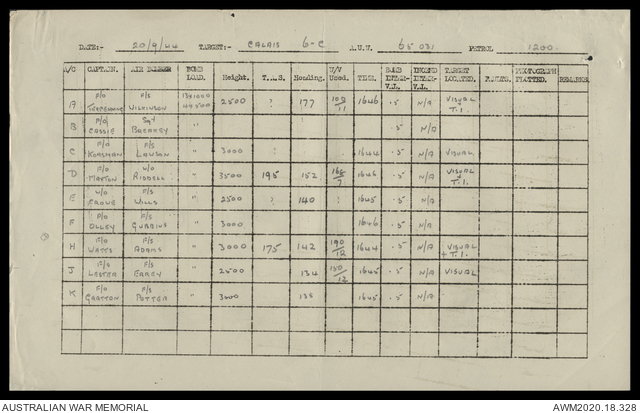 DATE:- 20/9/44 TARGET:- CALAIS 6-C A.U.W. 65 051 PETROL 1200
A/C CAPTAIN. AIR BOMBER BOMB LOAD. Height. T.A.S. Heading. W/V Used. TIME. BOMB INTER-VAL. INCEND INTER-VAL. TARGET LOCATED. RESULTS. PHOTOGRAPH PLOTTED. REMARKS.
A F/O F/S WILKINSON 13x1000 4x500 2500 ? 177 1646 .5 N/A VISUAL T.I.
B F/O CASSIE Sgt " .5 N/A
C F/O F/S LAWSON " 3000 1644 .5 N/A VISUAL
D F/O W/O RIDDELL " 3500 195 152 1646 .5 N/A VISUAL + T.I.
E W/O F/S WILLS " 2500 ? 140 ? 1645 .5 N/A
F F/O OLLEY F/S " 3000 1646 .5 N/A
H F/O WATTS F/S ADAMS " 3000 175 142 190/12 1644 .5 N/A VISUAL + T.I.
J F/O LESTER F/S " 2500 134 1645 .5 N/A VISUAL
K F/O GRATTON F/S POTTER " 3000 138 1645 .5 N/A
AUSTRALIAN WAR MEMORIAL AWM2020.18.328